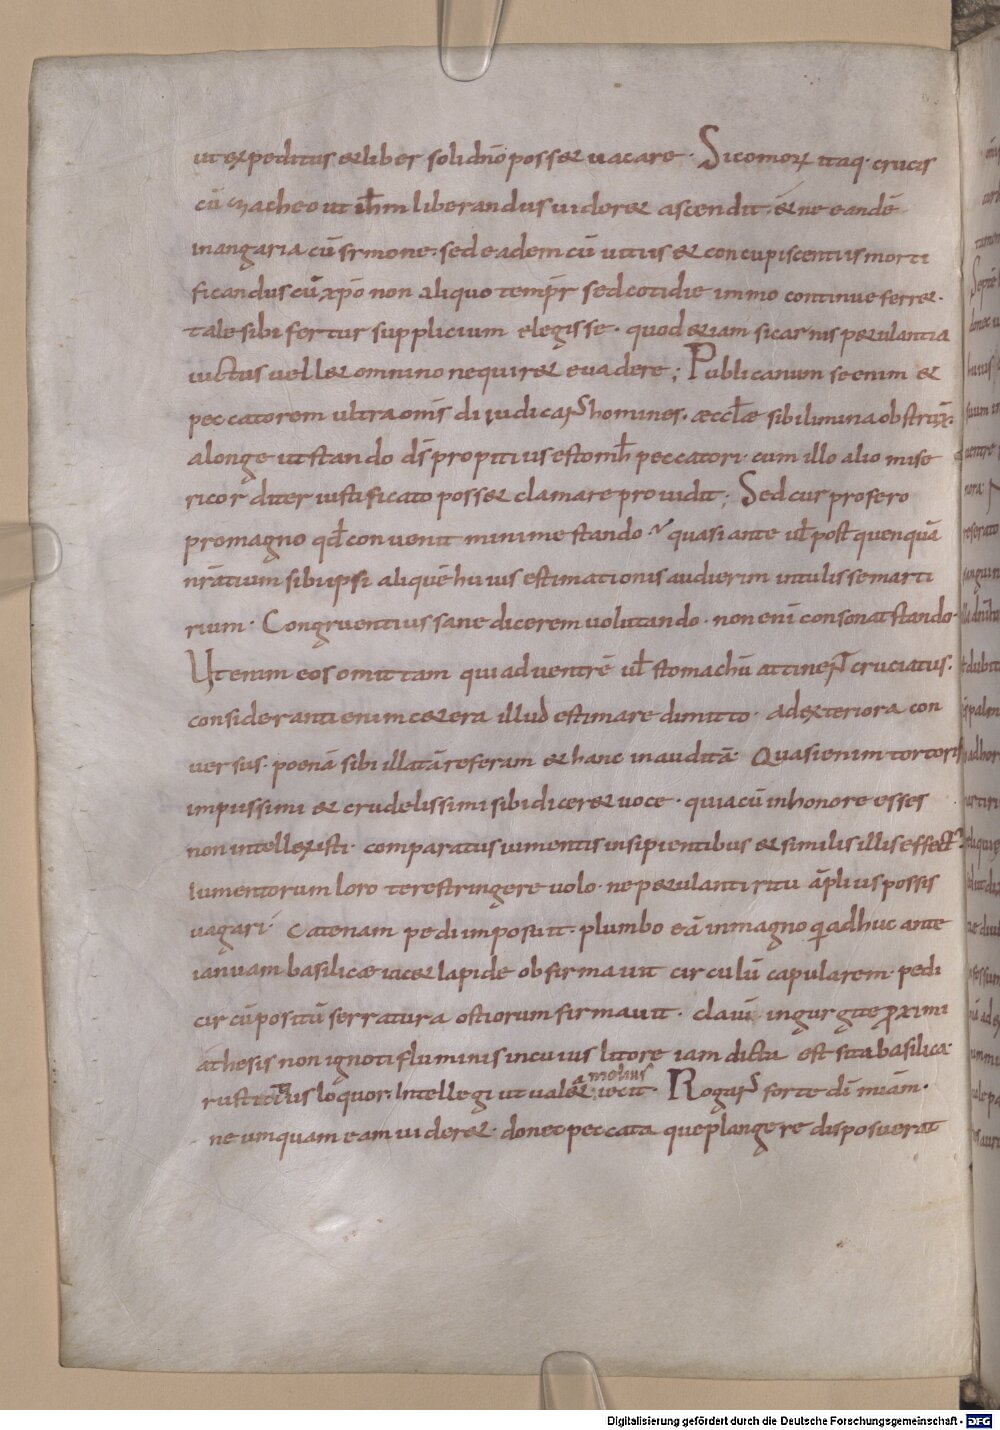 ut expeditus & liber soli dn̄o poss& uacare. Sicomorꝝ itaq· crucis
cū zacheo ut ih̄m liberandus uider& ascendit. & ne eandē
in angaria cū symone. sed eadem cū uitiis & concupiscentiis morti
ficandus cū xp̄o non aliquo temp̄r sed cotidie immo continue ferr&.
tale sibi fertur supplicium elegisse. quod &iam si carnis p&ulantia
uictus uell& omnino nequir& euadere; Publicanum se enim &
peccatorem ultra om̄s diiudicans homines. æccl̄æ sibi limina obstrux̄.
a longe ut stando ds̄ propitius esto mh̄ peccatori. cum illo alio mise
ricorditer iustificato poss& clamare prouidit; Sed cur profero
pro magno qd̄ conuenit minime stando? quasi ante ul̄ post quenquā
nr̄atium sibi ipsi aliquē huius estimationis audierim intulisse marti
rium. Congruentius sane dicerem uolutando. non eni consonat stando.
Ut enim eos omittam qui ad uentrē ul̄ stomachū attiner̄ cruciatus.
consideranti enim c&era illud estimare dimitto. ad exteriora con
uersus. poenā sibi illatā referam & hanc inauditā. Quasi enim tortoris
impiissimi & crudelissimi sibi dicer& uoce. quia cū in honore esses
non intellexisti. comparatus iumentis insipientibus & similis illis effect;
Iumentorum loro te restringere uolo. ne p&ulanti ritu āplius possis
uagari. Catenam pedi imposuit. plumbo eā in magno q adhuc ante
ianuam basilicæ iac& lapide obfirmauit circulū capularem. pedi
circūpositū serratura ostiorum firmauit. clauī in gurgite proximi
athesis non ignoti fluminis in cuius litore iam dicta est sita basilica
rusticius loquor. Intellegi ut ual& a melius iecit. Rogans forte di miām.
ne umquam eam uider&. donec peccata que plangere disposuerat
Digitalisierung gefördert durch die Deutsche Forschungsgemeinschaft - DFG